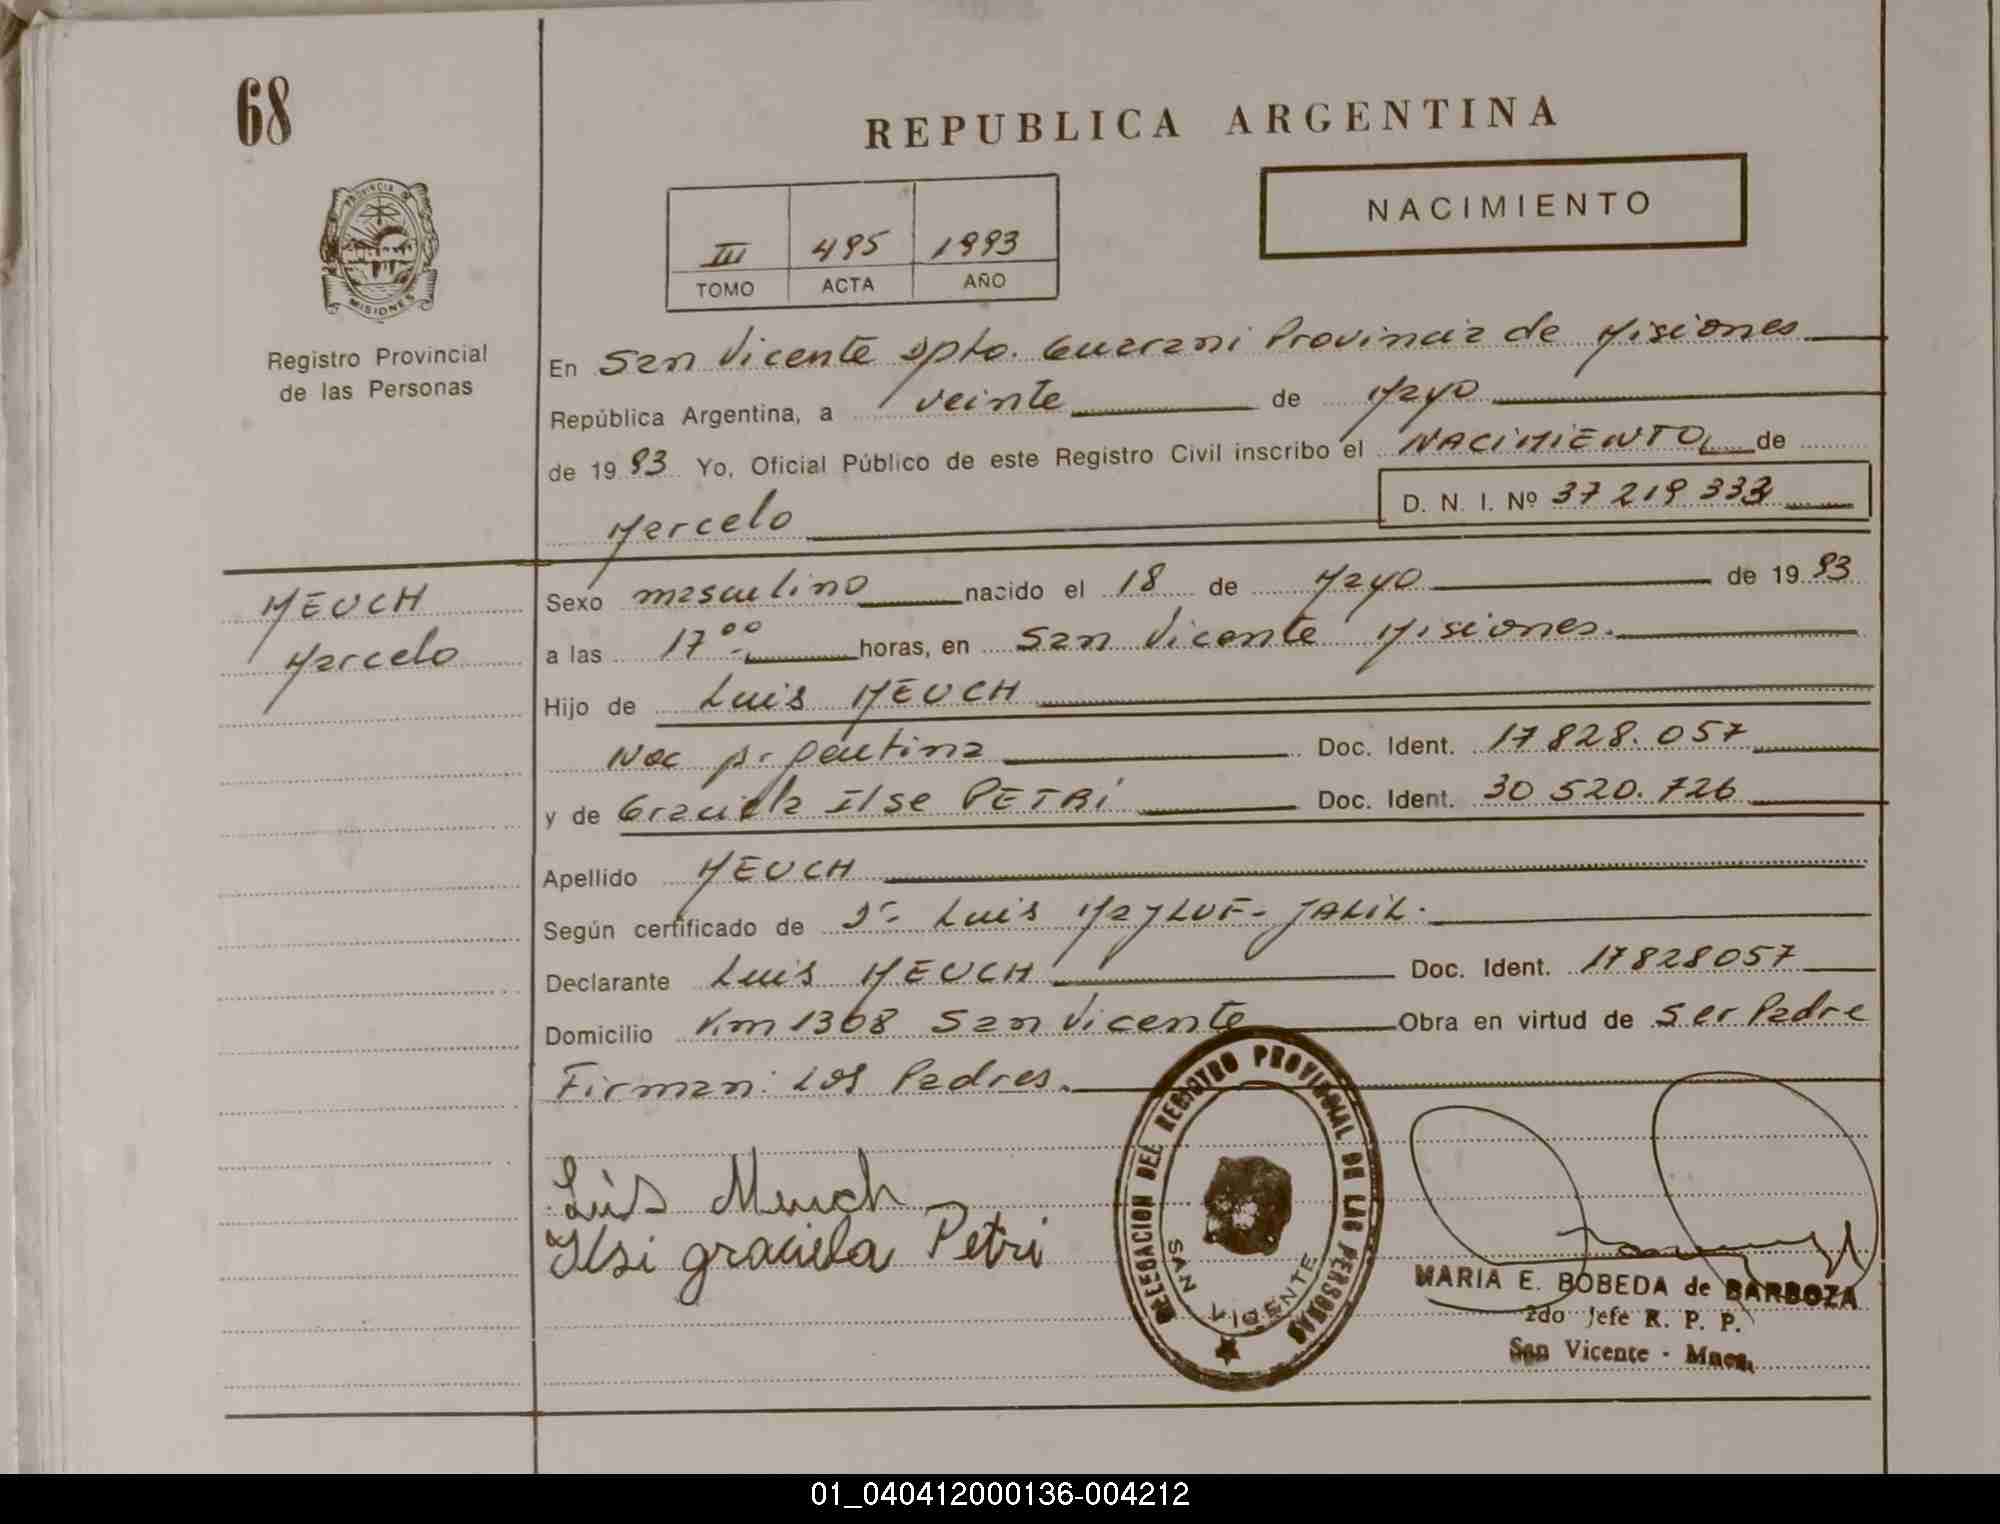 68
REPUBLICA ARGENTINA
NACIMIENTO
III 495 1993
TOMO ACTA AÑO
PROVINCIA DE
MISIONES
Registro Provincial
de las Personas
En San Vicente Dpto. Guarani Provincia de Misiones
República Argentina, a veinte de Mayo
de 1993 Yo, Oficial Público de este Registro Civil inscribo el NACIMIENTO de
D. N. I. Nº 37 219 333
Marcelo
MEUCH
Marcelo
Sexo masculino nacido el 18 de Mayo de 1993
a las 17 00 horas, en San Vicente Misiones.
Hijo de Luis MEUCH
Nac Argentina Doc. Ident. 17 828.057
y de Graciela Ilse PETRi Doc. Ident. 30 520.726
Apellido MEUCH
Según certificado de Dr. Luis JALiL.
Declarante Luis MEUCH Doc. Ident. 17828057
Domicilio Km 1308 San Vicente Obra en virtud de Ser Padre
Firman: Los Padres.
Luis Meuch
Ilsi graciela Petri
DELEGACION DEL REGISTRO PROVINCIAL DE LAS PERSONAS
SAN VICENTE
MARIA E. BOBEDA de BARBOZA
2do Jefe R. P. P.
San Vicente - Mnes.
01_040412000136-004212